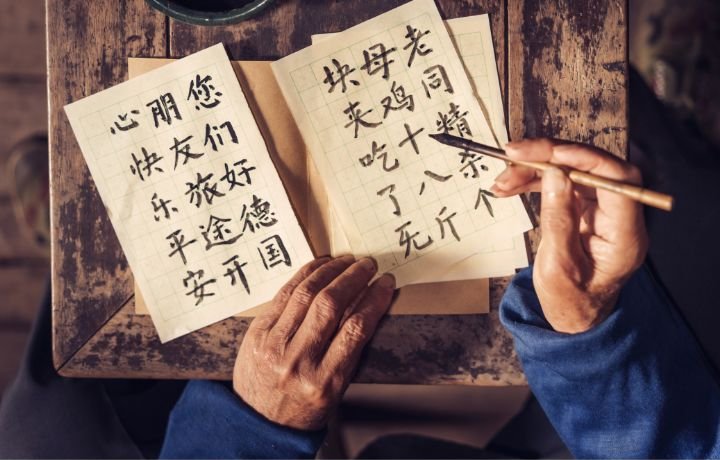 老同精杀个
母鸡十八斤
块夹吃了死
您们好德国
朋友旅途开
心快乐平安